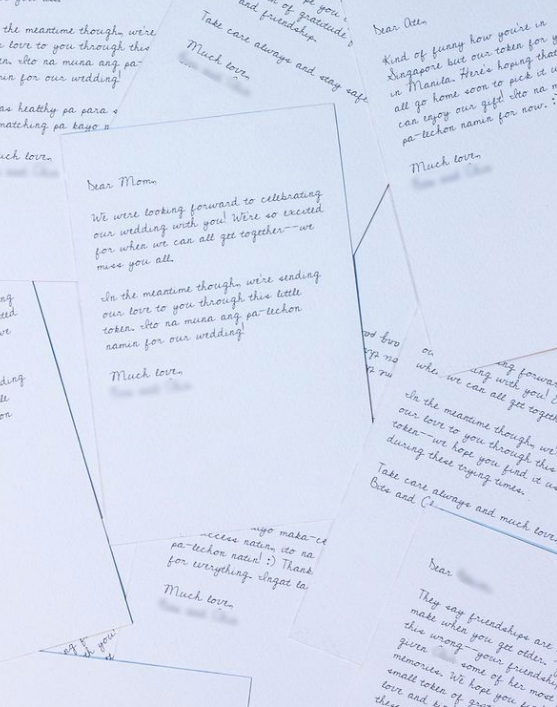 the meantime though, we're
love to you through this
Ito na muna ang pa-
namin for our wedding!
as healthy pa para s
matching pa kayo n
uch love,
of gratitude
and friendship.
Take care always and stay safe
Much love,
Dear Ate,
Kind of funny how you're in
Singapore but our token for y
in Manila. Here's hoping that
all go home soon to pick it u
can enjoy our gift! Ito na m
pa-lechon namin for now. :
Much love,
Dear Mom,
We were looking forward to celebrating
our wedding with you! We're so excited
for when we can all get together--we
miss you all.
In the meantime though, we're sending
our love to you through this little
token. Ito na muna ang pa-lechon
namin for our wedding!
Much love,
ng
ted
we
ding
tle
on
ng forwa
ng with you!
whe we can all get togeth
In the meantime though, we'
our love to you through this
token--we hope you find it us
during these trying times.
Take care always and much love,
Bits and
ayo maka-ce
ccess natin, ito na
pa-lechon natin! :) Thank
for everything. Ingat la
Much love,
Dear
They say friendships are
make when you get older.
this wrong--your friendshi
given some of her most
memories. We hope you
small token of grat
love and
these